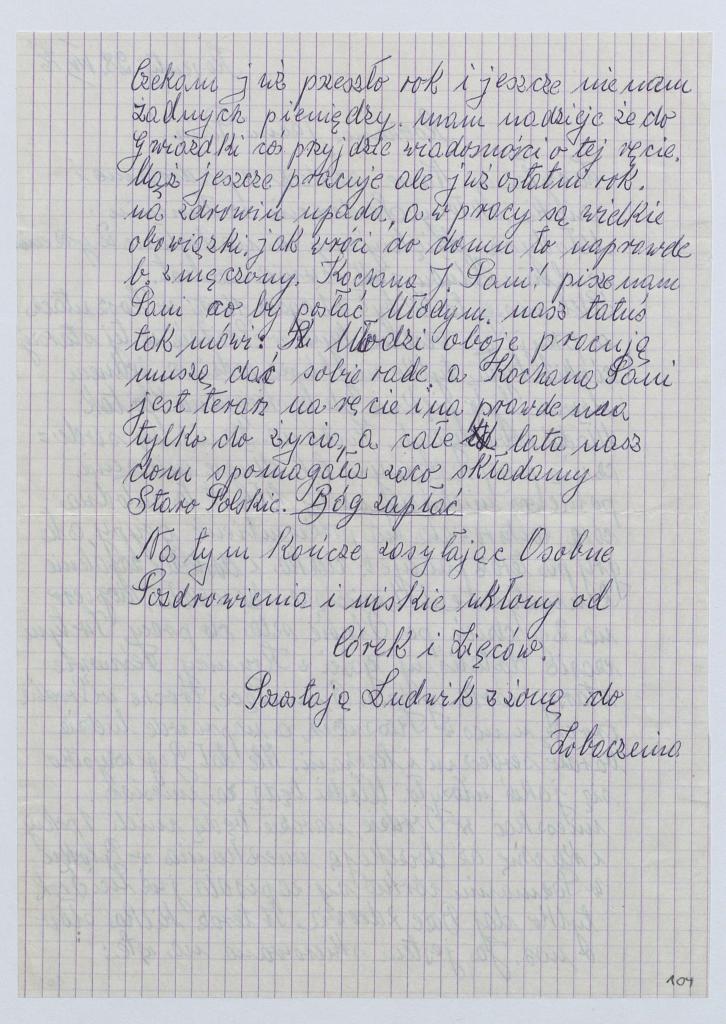 Czekam już przeszło rok i jeszcze nie mam
żadnych pieniędzy. mam nadzieje że do
Gwiazdki coś przyjdzie wiadomości o tej ręcie.
Mąż jeszcze pracuje ale już ostatni rok.
na zdrowiu upada, a w pracy są wielkie
obowiązki. jak wróci do domu to naprawde
b. zmęczony. Kochana J. Pani! pisze nam
Pani co by posłać Młodym. nasz tatuś
tak mówi: Młodzi oboje pracują
muszą dać sobie rade. a Kochana Pani
jest teraz na ręcie i na prawde ma
tylko do życia, a całe lata nasz
dom spomagała zaco składamy
Staro Polskie. Bóg zapłać
Na tym Kończe zasyłając Osobne
Pozdrowienia i niskie ukłony od
Córek i Zięców.
Pozostają Ludwik z żoną do
Zobaczenia
104